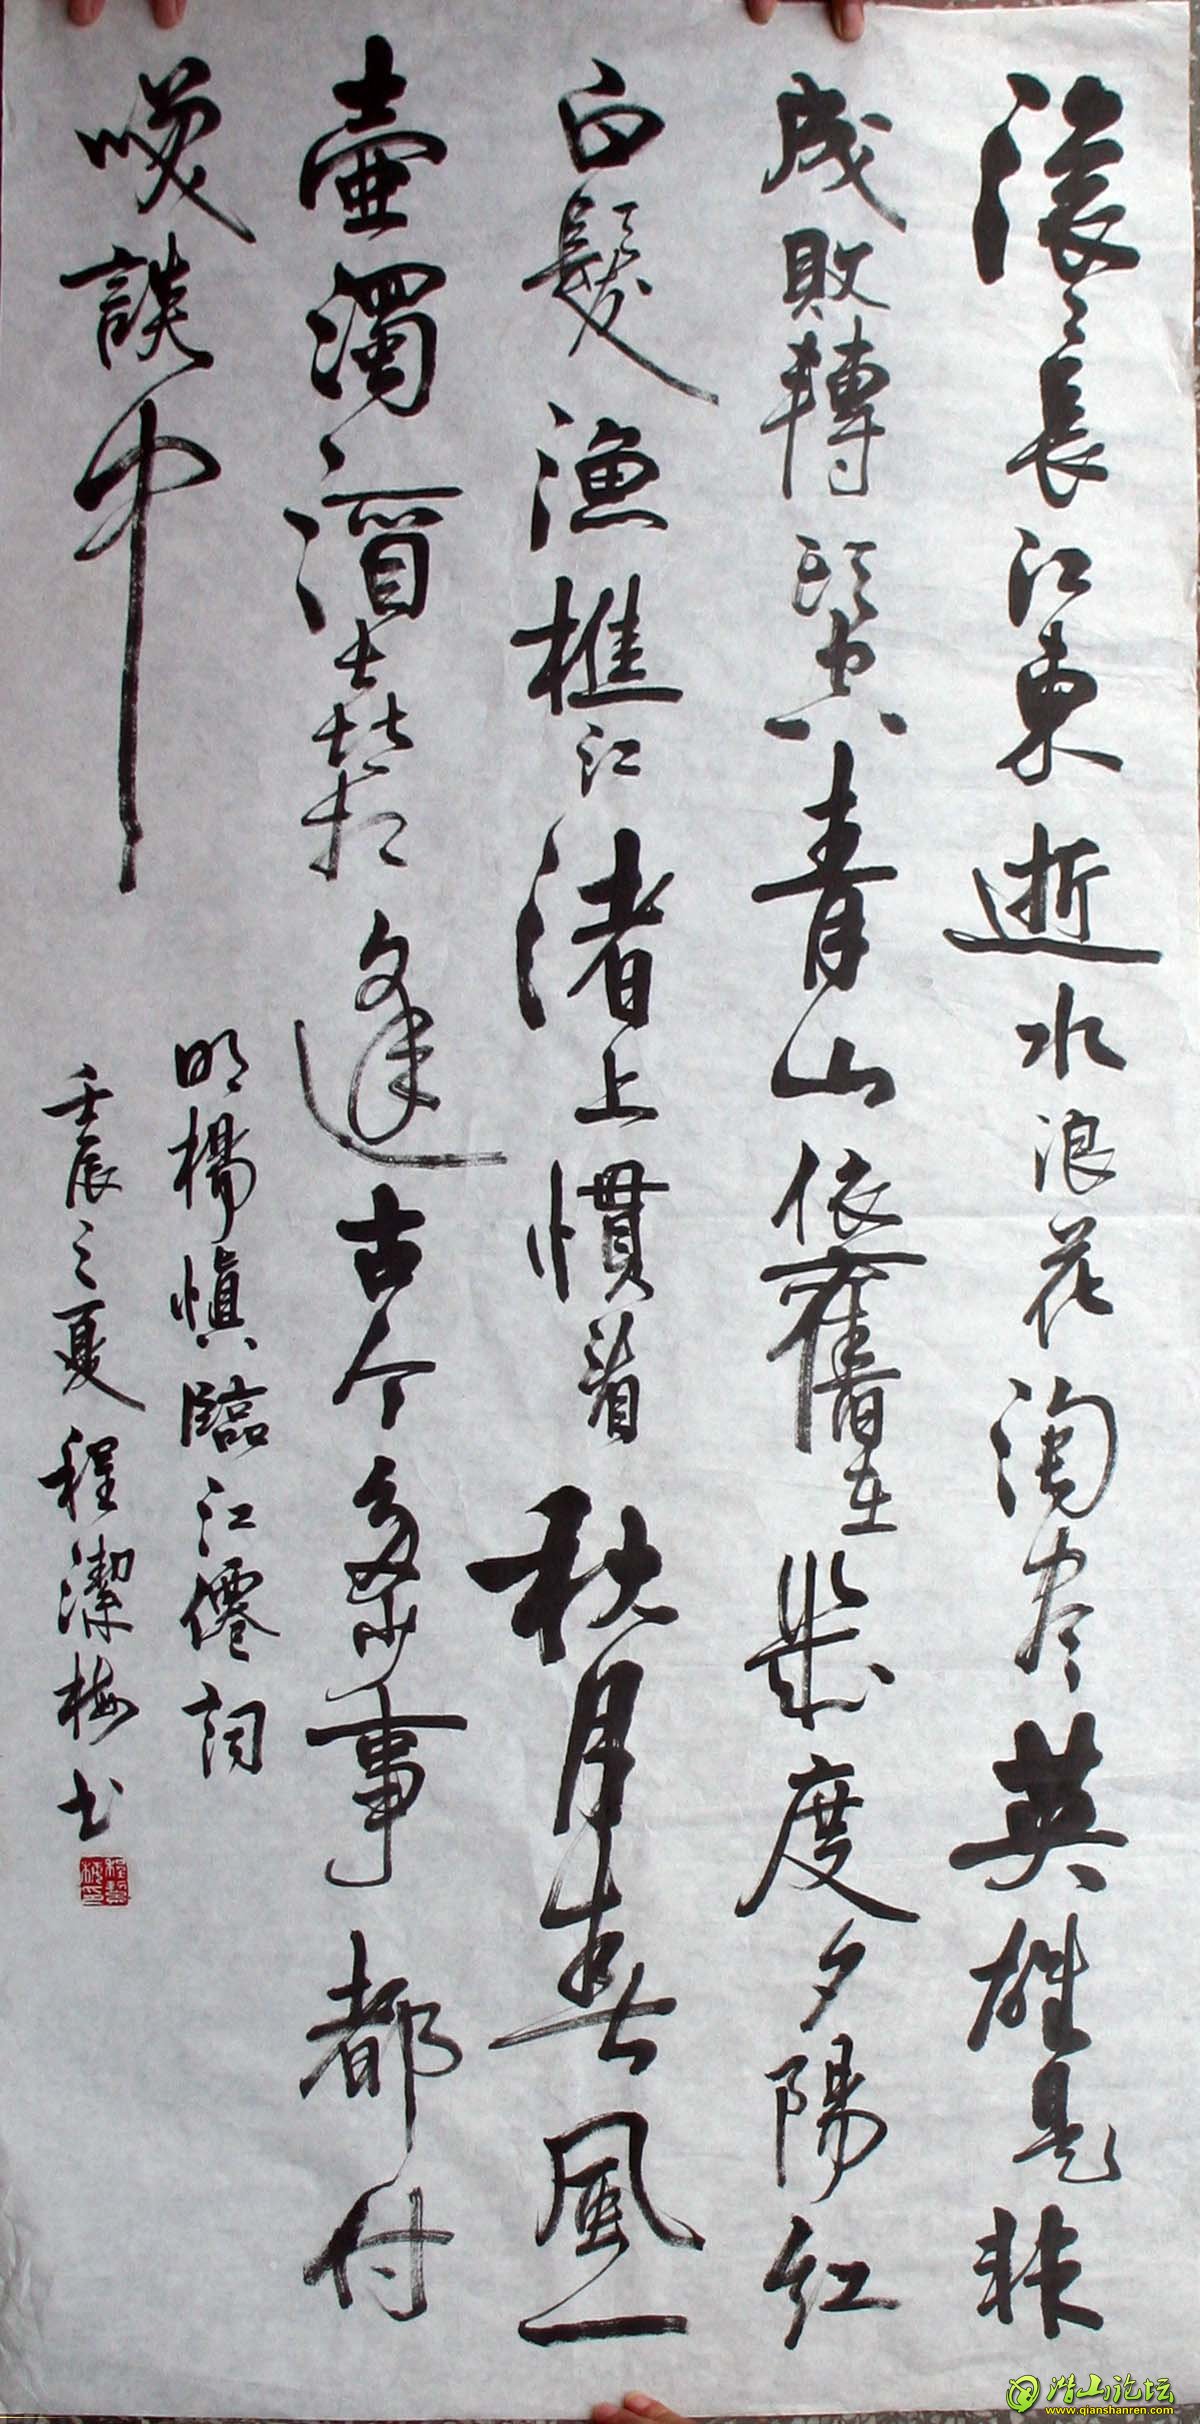 滚〻長江東逝水浪花淘尽英雄是非
成敗轉頭空青山依舊在幾度夕陽紅
白髮漁樵江渚上慣看秋月春風一
壷濁酒喜相逢古今多少事都付
咲談中
明楊慎臨江僊詞
壬辰之夏程潔梅书
潜山论坛
www.qianshanren.com